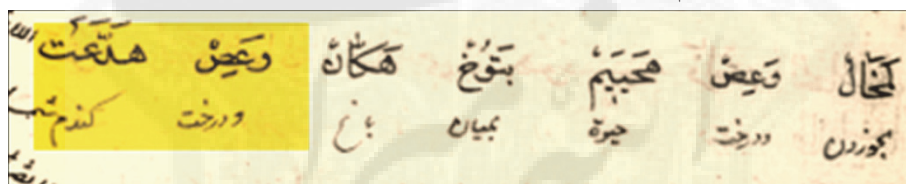 لمخال وَعِصْ هَحَيِيمْ بتَوُخْ هَكَانْ وَعِصْ هَدَّعَتْ
بخوردن ودرخت حيوة بميان باغ ودرخت كندم